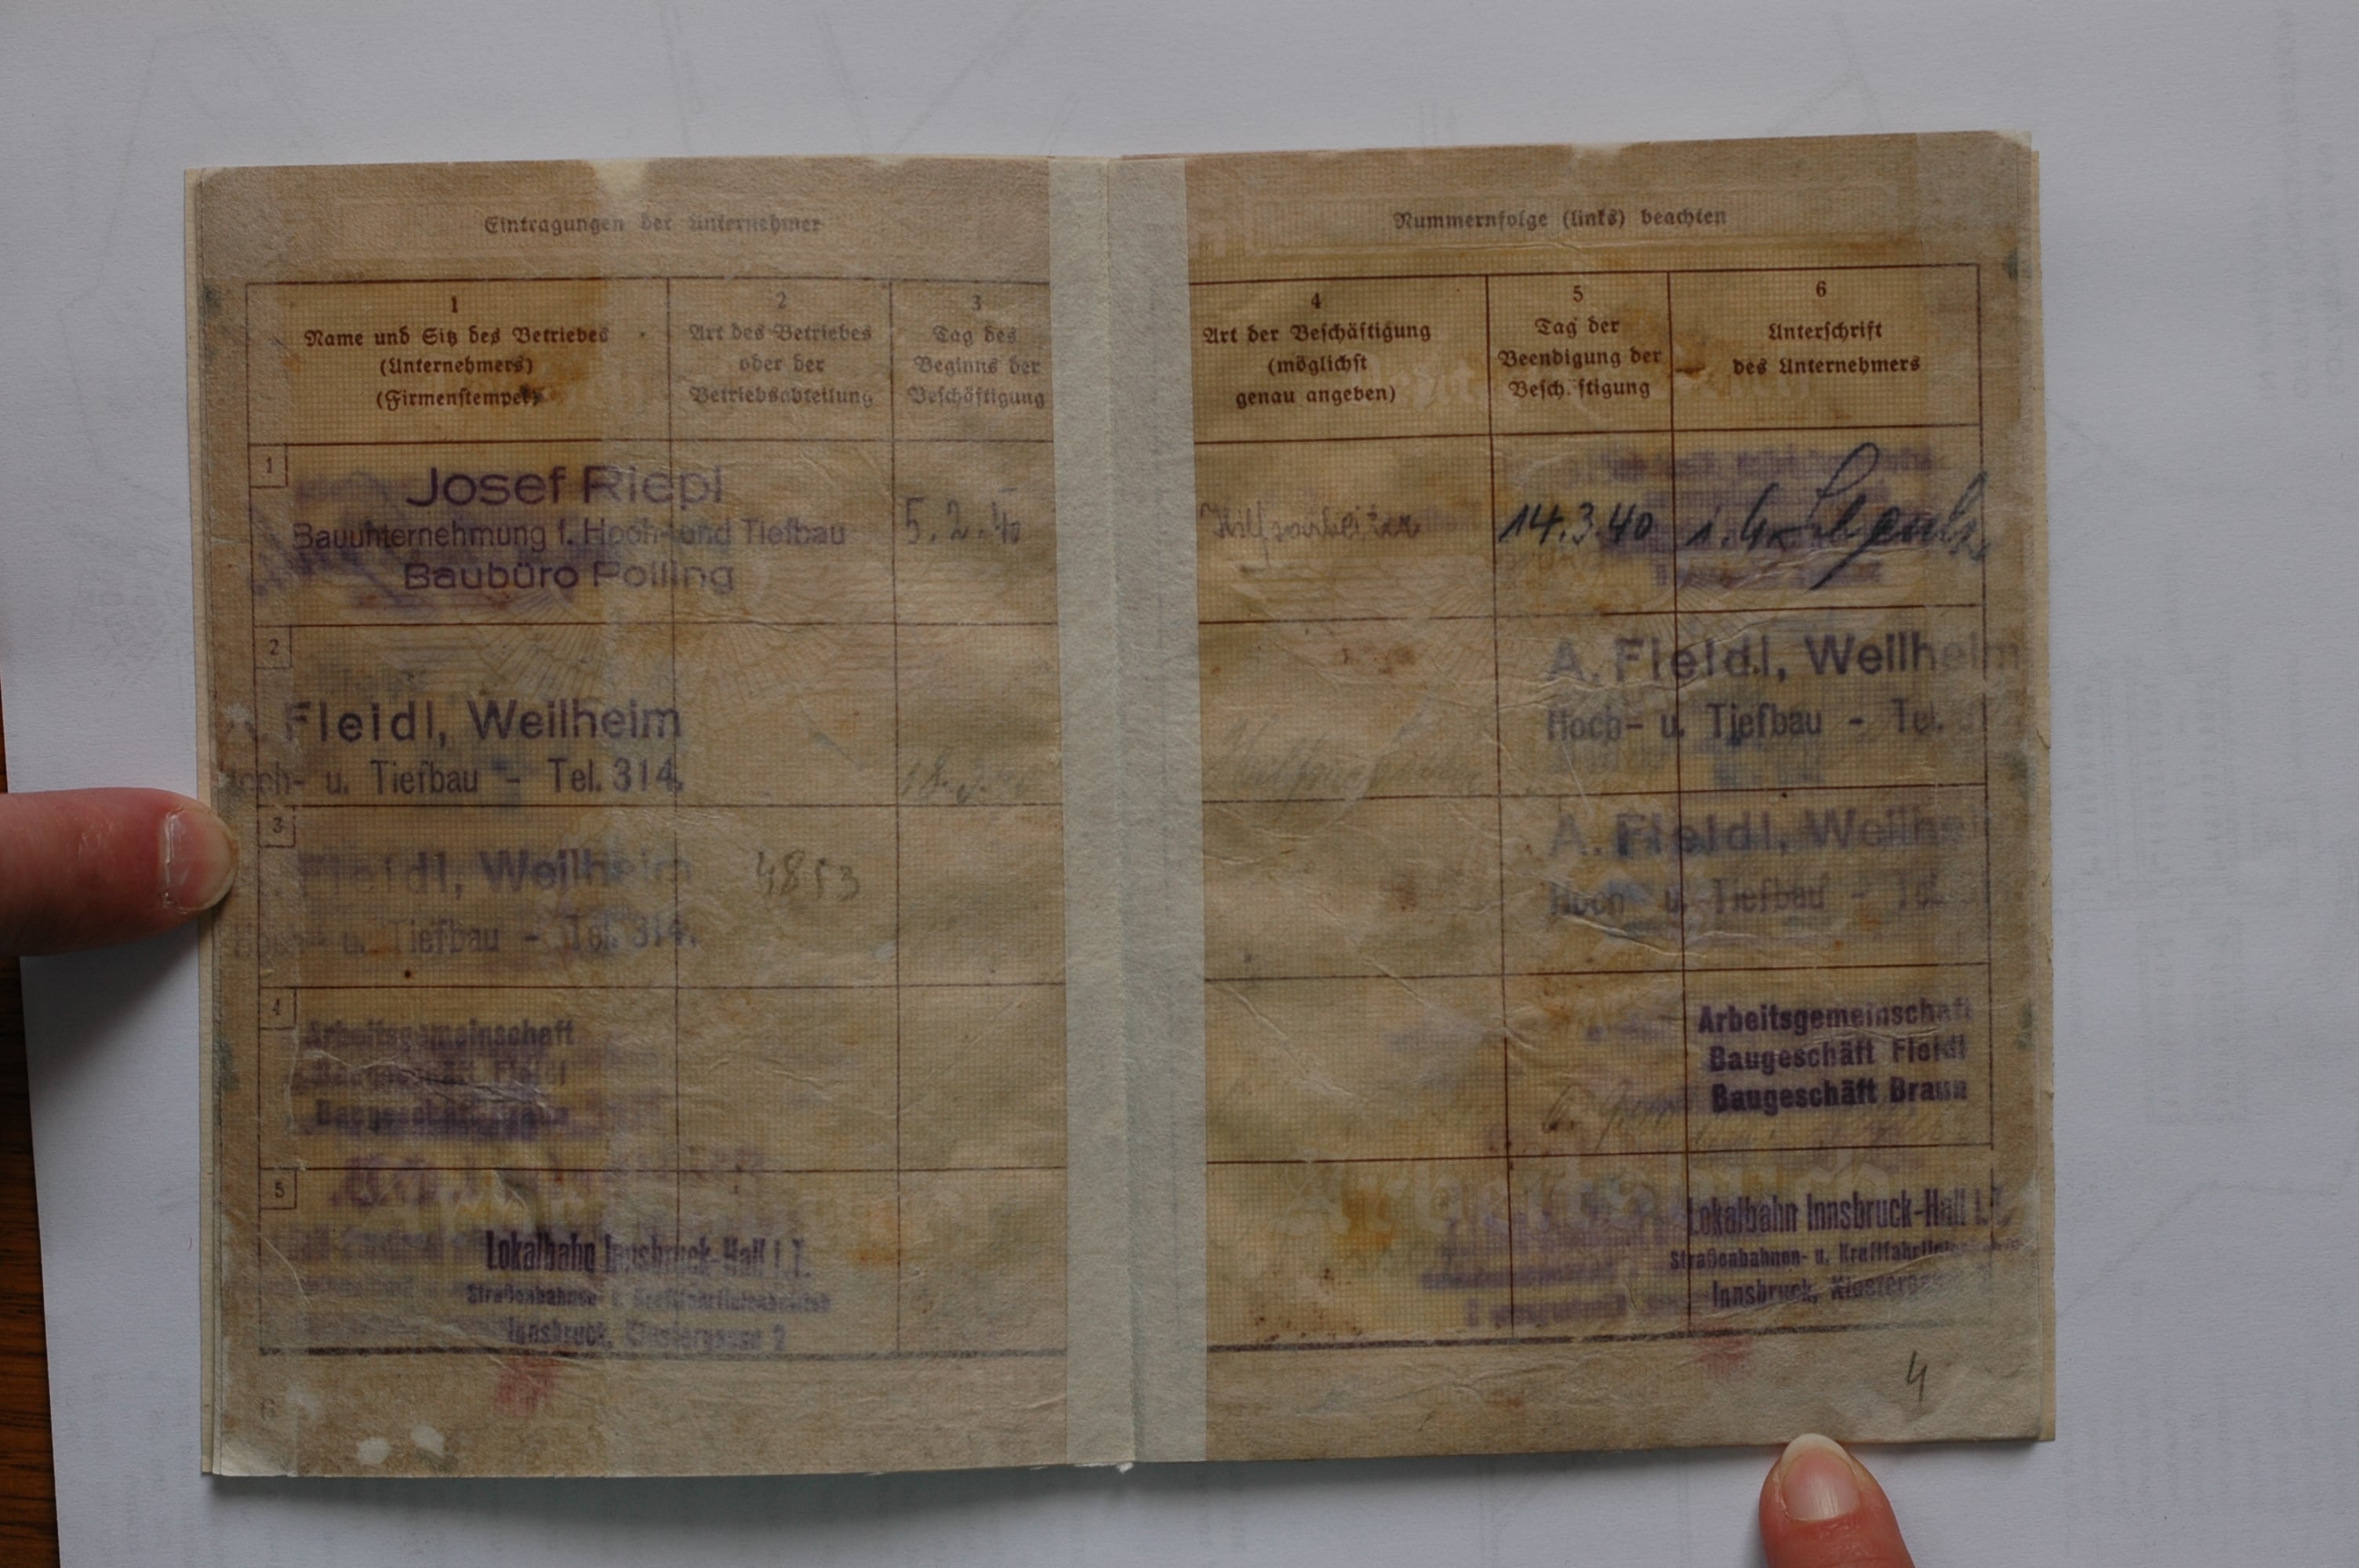 Eintragungen der Unternehmer
1
Name und Sitz des Betriebes
(Unternehmers)
(Firmenstempel)
2
Art des Betriebes
oder der
Betriebsabteilung
3
Tag des
Beginns der
Beschäftigung
1
Josef Riepl
Bauunternehmung f. Hoch- und Tiefbau
Baubüro Polling
5.2.40
2
Fleidl, Weilheim
Hoch- u. Tiefbau - Tel. 314.
18.3.40
3
Fleidl, Weilheim
Hoch- u. Tiefbau - Tel. 314.
4853
4
Arbeitsgemeinschaft
Baugeschäft Fleidl
Baugeschäft Braun
5
Lokalbahn Innsbruck-Hall i.T.
Straßenbahnen- u. Kraftfahrlinienbetrieb
Innsbruck, Klostergasse 2
6
Nummernfolge (links) beachten
4
Art der Beschäftigung
(möglichst
genau angeben)
5
Tag der
Beendigung der
Besch.ftigung
6
Unterschrift
des Unternehmers
Hilfsarbeiter
14.3.40
A. Fleidl, Weilheim
Hoch- u. Tiefbau - Tel.
Hilfsarbeiter
A. Fleidl, Weilhei
Hoch- u. Tiefbau - Tel.
Arbeitsgemeinschaft
Baugeschäft Fleidl
Baugeschäft Braun
Lokalbahn Innsbruck-Hall i.T.
Straßenbahnen- u. Kraftfahrlinienbetrieb
Innsbruck, Klostergasse
4